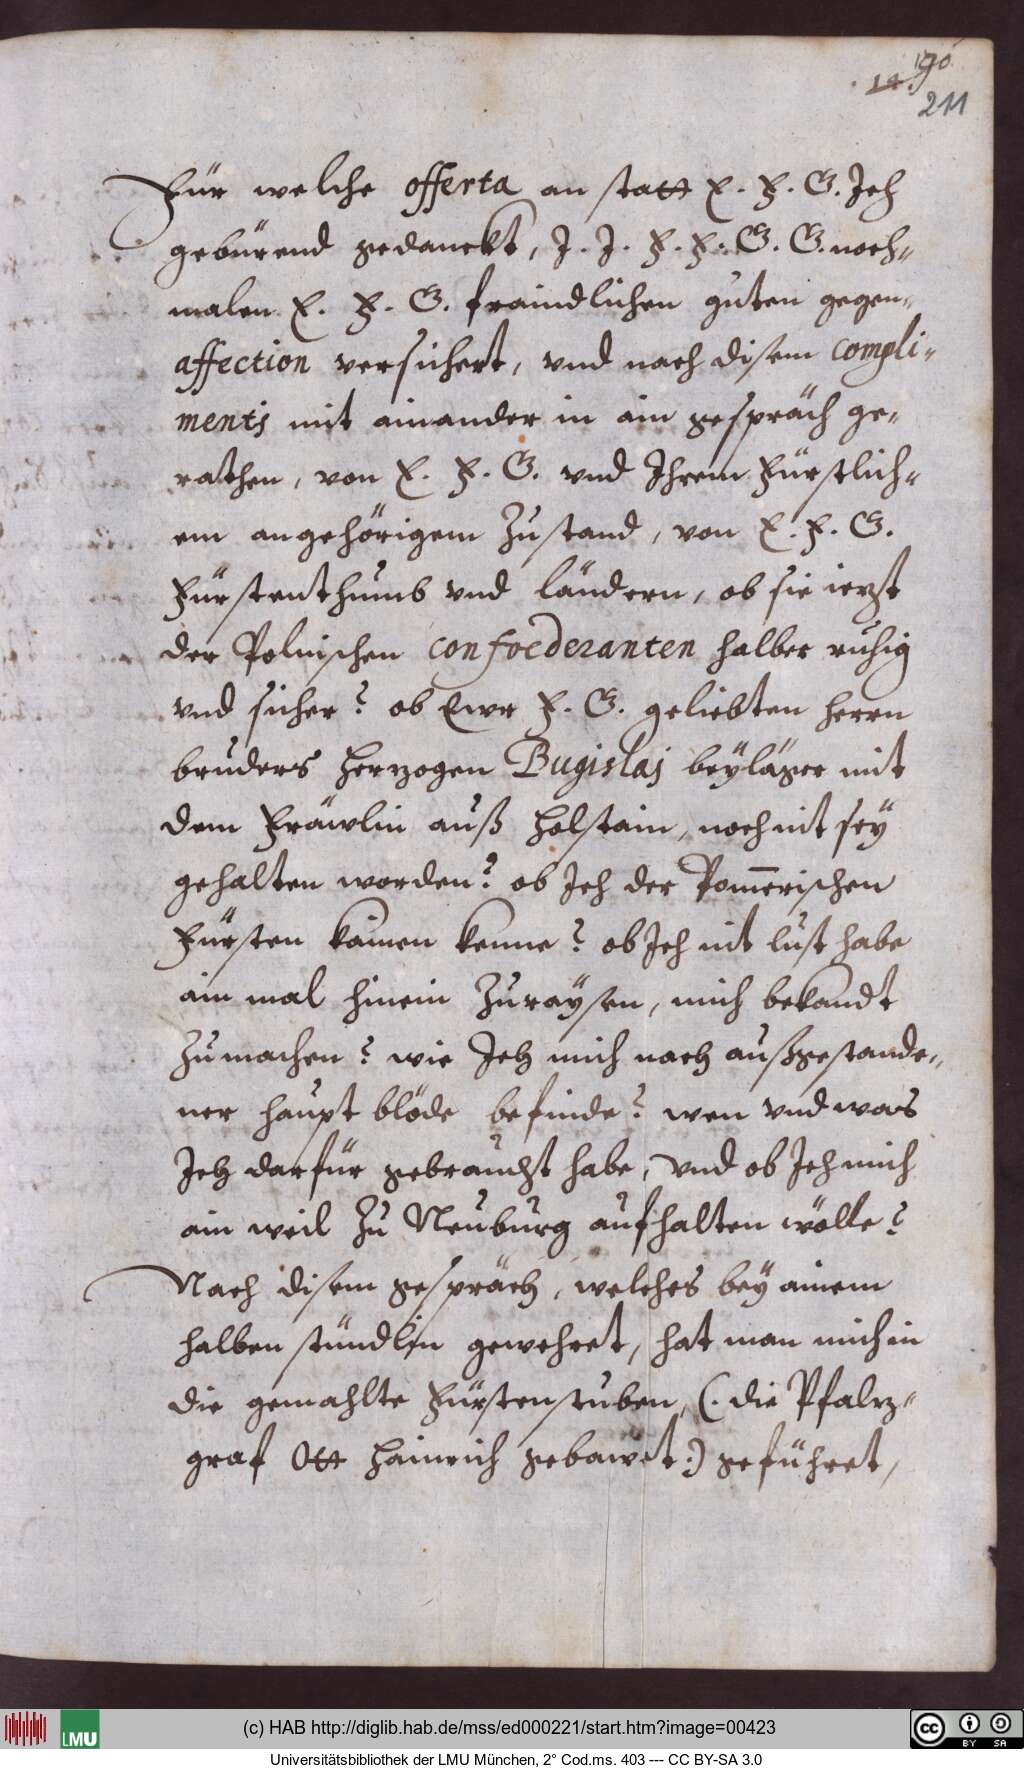 190
14.
211
Für welche offerta an statt E. F. G. Ich
gebürend gedanckt, J. J. F. F. G. G. noch-
malen E. F. G. fraindlichen guten gegen-
affection versichert, vnd nach disem compli-
ments mit ainander in ain gespräch ge-
rathen, von E. F. G. vnd Ihrem Fürstlich-
em angehörigem Zustand, von E. F. G.
Fürstenthumb vnd ländern, ob sie ietzt
der Polnischen confoederanten halber ruhig
vnd sicher? ob Ewr F. G. geliebten herrn
bruders herzogen Bugislai beÿläger mit
dem Fräwlin auß Holstain, noch nit seÿ
gehalten worden? ob Ich der Pom̄erischen
Fürsten kainen kenne? ob Ich nit lust habe
ain mal hinein Zuraÿsen, mich bekandt
Zumachen? wie Ich mich nach außgestande-
ner haupt blöde befinde? wen vnd was
Ich darfür gebraucht habe, vnd ob Ich mich
ain weil Zu Neuburg aufhalten wölle?
Nach disem gespräch, welches beÿ ainem
halben stündlin gewehret, hat man mich in
die gemahlte Fürstenstuben, (. die Pfaltz-
graf Ott Hainrich gebawet:) geführet,
(c) HAB http://diglib.hab.de/mss/ed000221/start.htm?image=00423
LMU
cc BY SA
Universitätsbibliothek der LMU München, 2° Cod.ms. 403 --- CC BY-SA 3.0